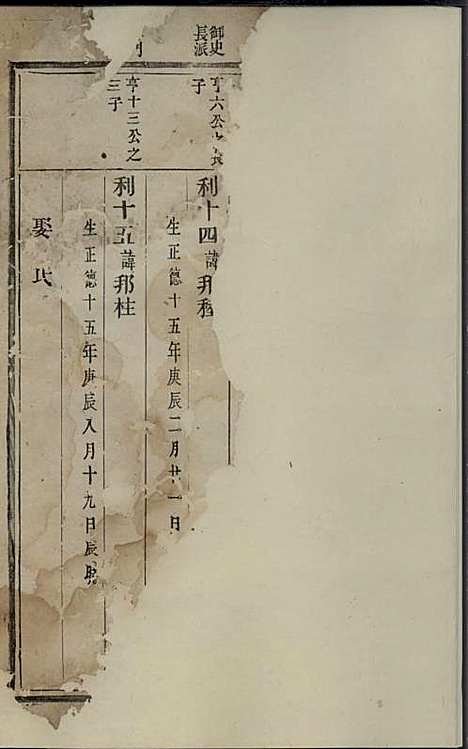 御史
長派
亨六公之長
子
利十四諱邦
生正德十五年庚辰二月廿一日
亨十三公之
三子
利十五諱邦柱
生正德十五年庚辰八月十九日辰時
娶氏